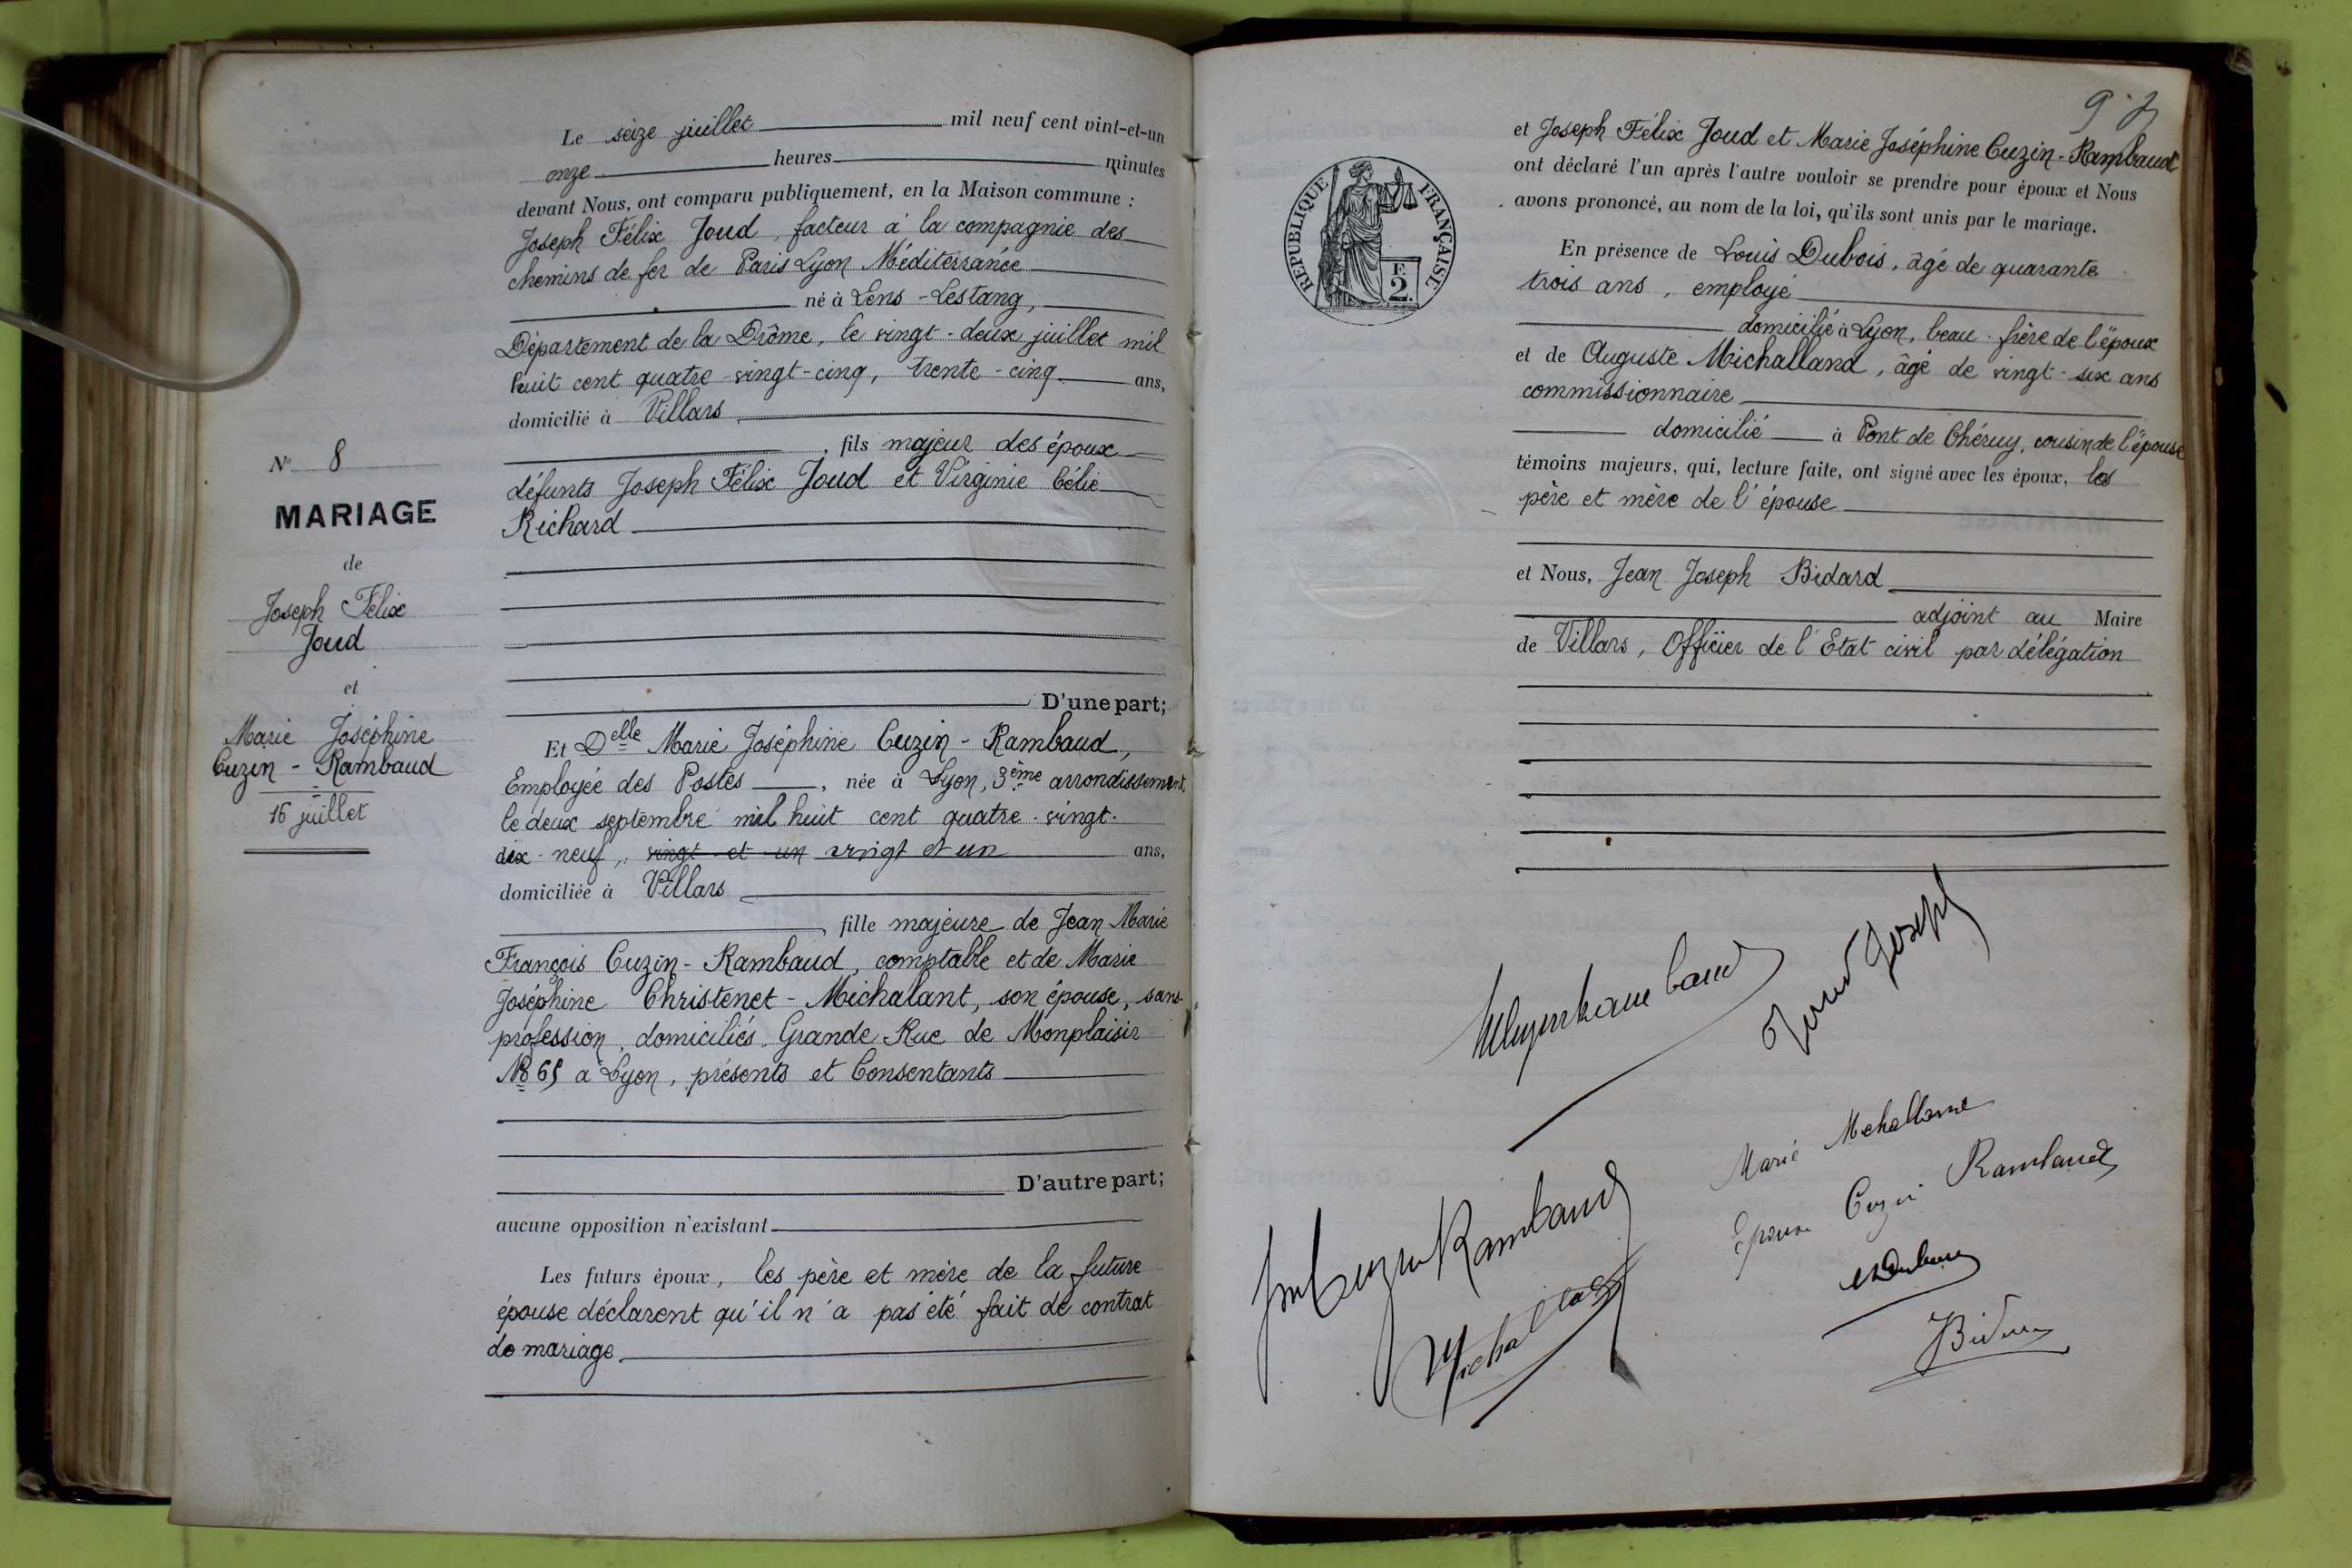 Le seize juillet mil neuf cent vint-et-un
onze heures minutes
devant Nous, ont comparu publiquement, en la Maison commune :
Joseph Félix Joud, facteur à la compagnie des
chemins de fer de Paris Lyon Méditerranée
né à Lens-Lestang,
Département de la Drôme, le vingt-deux juillet mil
huit cent quatre-vingt-cinq, trente-cinq ans,
domicilié à Villars
, fils majeur des époux
défunts Joseph Félix Joud et Virginie Célie
Richard
D'une part;
Et Delle Marie Joséphine Cuzin-Rambaud,
Employée des Postes, née à Lyon, 3ème arrondissement
le deux septembre mil huit cent quatre-vingt-
dix-neuf, vingt et un vingt et un ans,
domiciliée à Villars
, fille majeure de Jean Marie
François Cuzin-Rambaud, comptable et de Marie
Joséphine Christenet-Michalant, son épouse, sans
profession, domiciliés Grande Rue de Monplaisir
No 65 à Lyon, présents et Consentants
D'autre part;
aucune opposition n'existant
Les futurs époux, les père et mère de la future
épouse déclarent qu'il n'a pas été fait de contrat
de mariage.
No 8
MARIAGE
de
Joseph Félix
Joud
et
Marie Joséphine
Cuzin-Rambaud
16 juillet
RÉPUBLIQUE FRANÇAISE
2 F.
et Joseph Félix Joud et Marie Joséphine Cuzin-Rambaud
ont déclaré l'un après l'autre vouloir se prendre pour époux et Nous
avons prononcé, au nom de la loi, qu'ils sont unis par le mariage.
En présence de Louis Dubois, âgé de quarante
trois ans, employé
domicilié à Lyon, beau-frère de l'époux
et de Auguste Michalland, âgé de vingt-six ans
commissionnaire
domicilié à Pont de Chéruy, cousin de l'épouse
témoins majeurs, qui, lecture faite, ont signé avec les époux, les
père et mère de l'épouse
et Nous, Jean Joseph Bidard
adjoint au Maire
de Villars, Officier de l'Etat civil par délégation
Joud Joseph
Marie Michalland
Epouse Cuzin Rambaud
Cuzin Rambaud
Michalland